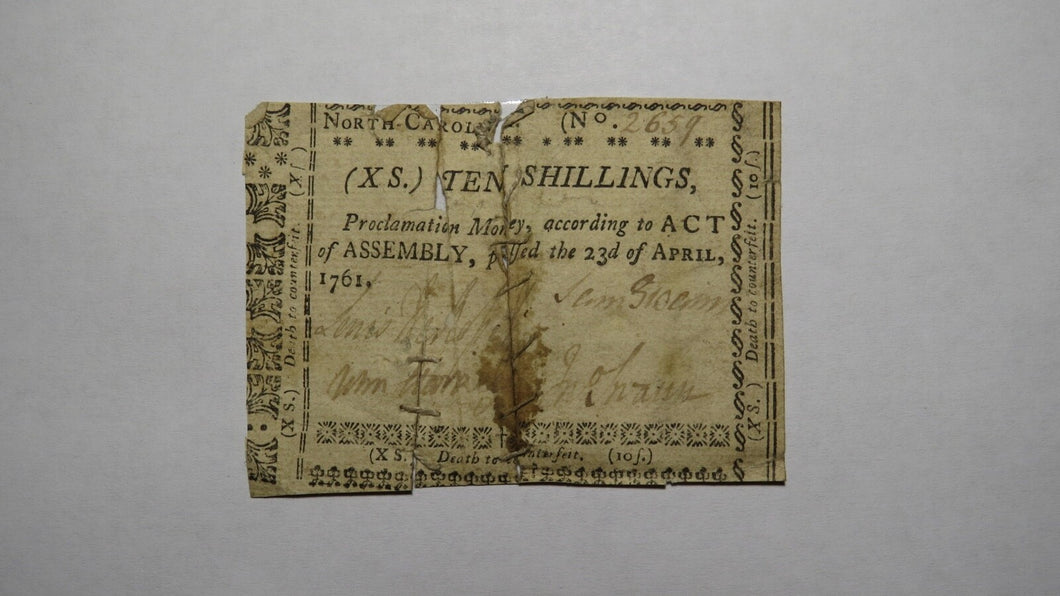 NORTH-CAROL (No. 2659
(X S.) TEN SHILLINGS,
Proclamation Money, according to ACT
of ASSEMBLY, paſſed the 23d of APRIL,
1761.
Lewis Sam Swann
Wm Jno Swann
(X S. Death to counterfeit. (10ſ.)
(X S.) Death to counterfeit. (Xſ.)
(X S.) Death to counterfeit. (10ſ.)